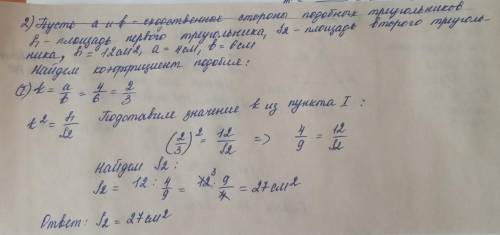 2) Пусть a и b - сходственные стороны подобных треугольников
S₁ - площадь первого треугольника, S₂ - площадь второго треуголь-
ника, S₁ = 12 см², a = 4 см, b = 6 см
Найдем коэффициент подобия:
1) k = a/b = 4/6 = 2/3
k² = S₁/S₂ Подставим значение k из пункта I:
(2/3)² = 12/S₂ => 4/9 = 12/S₂
Найдем S₂:
S₂ = 12 : 4/9 = 12³ · 9/4 = 27 см²
Ответ: S₂ = 27 см²